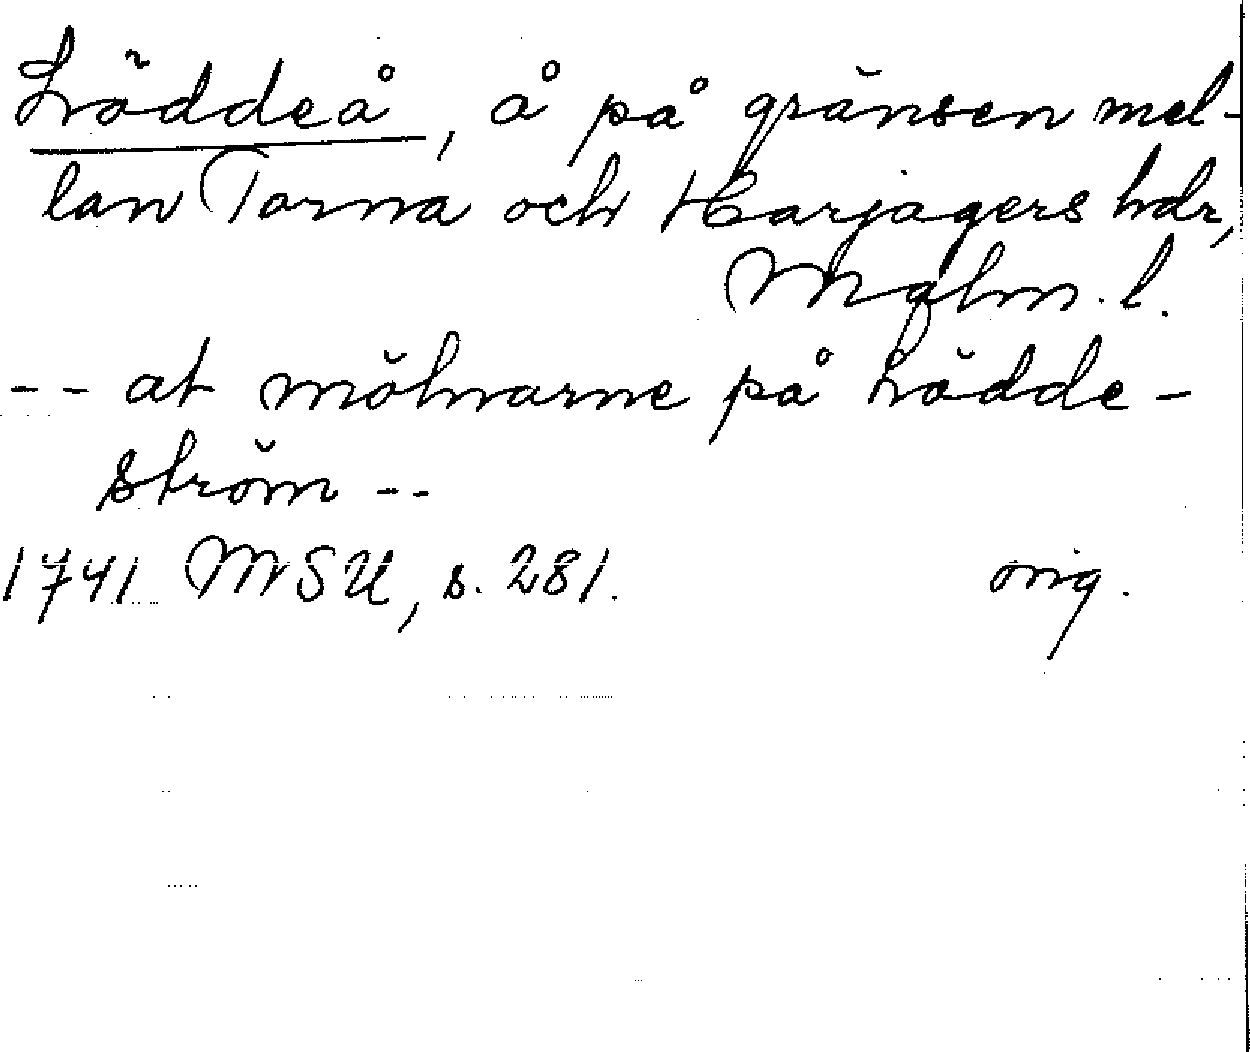 Löddeå, å på gränsen mel-
lan Torna och Harjagers hdr,
Malm. l.
-- at mölnarne på Lödde-
ström --
1741 MSU, s. 281. orig.